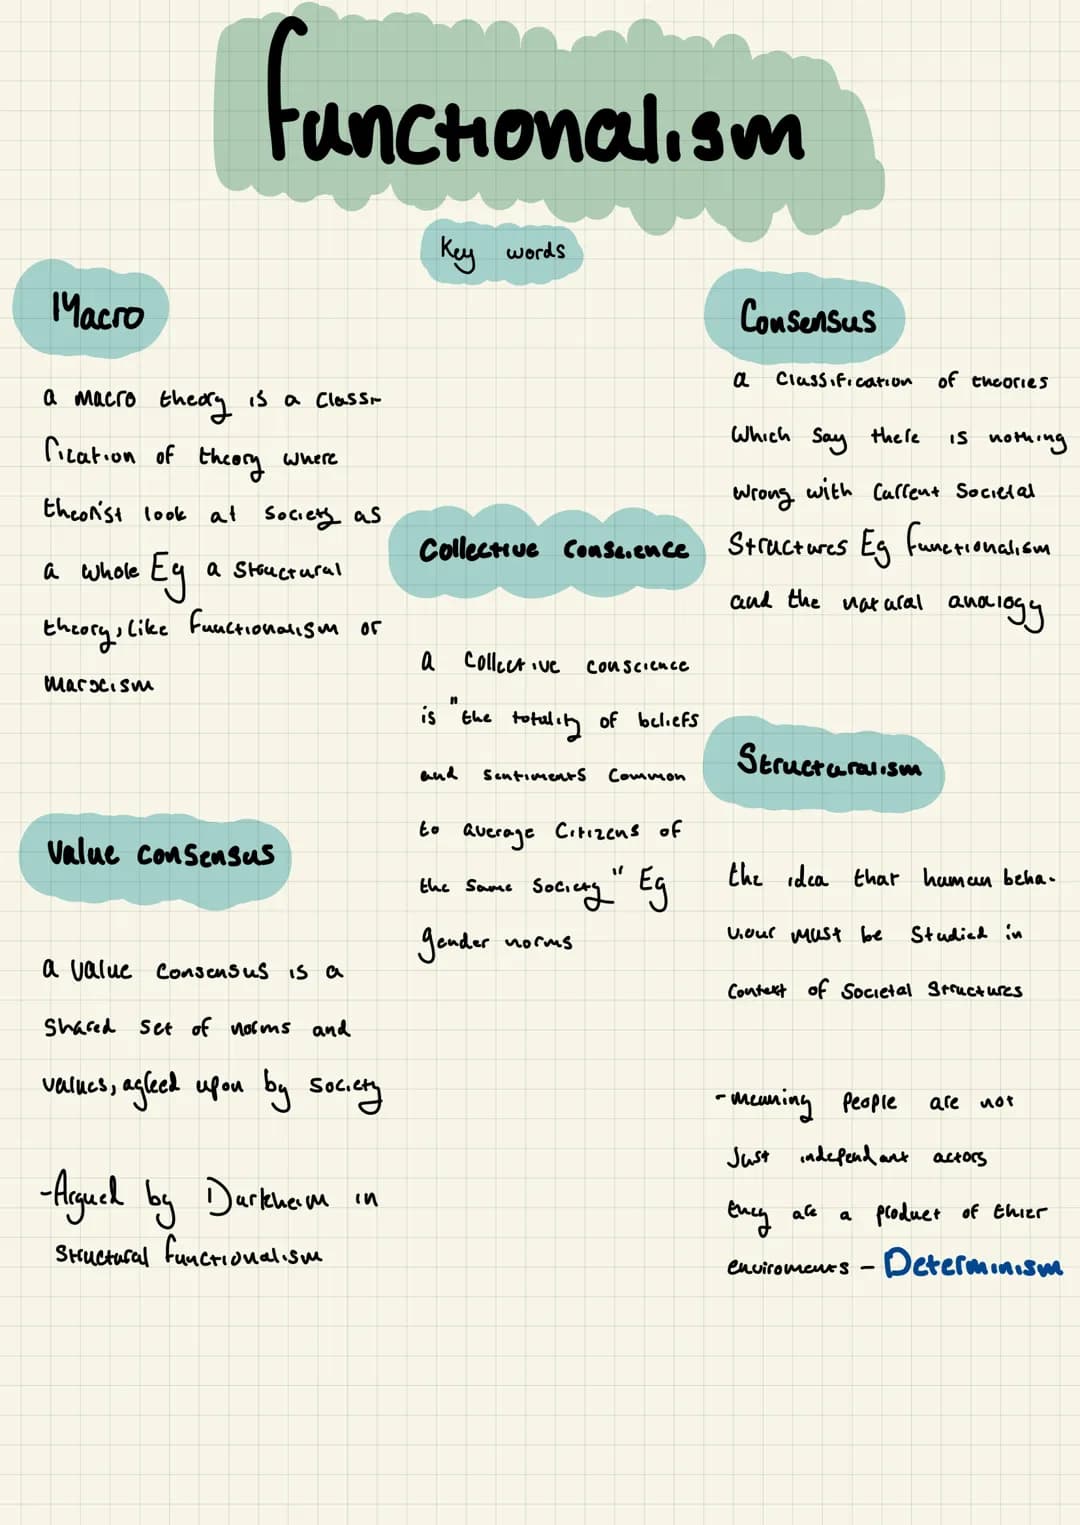 functionalism
Key words
Macro
a macro theory is a classi-
fication of theory where
theorist look at society as
a whole Eg a structural
theory, like functionalism or
marxism
Value consensus
a value consensus is a
shared set of norms and
values, agreed upon by society
-Argued by Durkheim in
structural functionalism
Collective conscience
a collective conscience
is "the totality of beliefs
and sentiments common
to average citizens of
the same society" Eg
gender norms
Consensus
a classification of theories
which say there is nothing
wrong with current societal
structures Eg functionalism
and the natural analogy
Structuralism
the idea that human beha-
viour must be studied in
context of societal structures
- meaning people are not
just independant actors
they are a product of thier
enviroments - Determinism